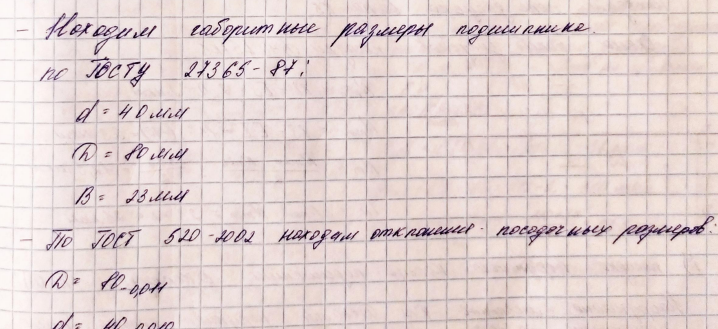 - Находим габаритные размеры подшипника.
по ГОСТу 27365-87:
d = 40 мм
D = 80 мм
B = 23 мм
- По ГОСТ 520-2002 находим отклонения посадочных размеров:
D = 80-0,011
d = 40